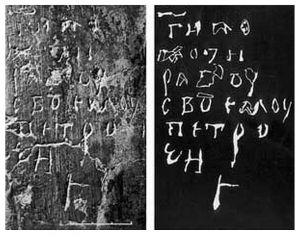 ГН ПО
МОЗН
РАБОУ
СВОЕМОУ
ПЕТРО
ВН